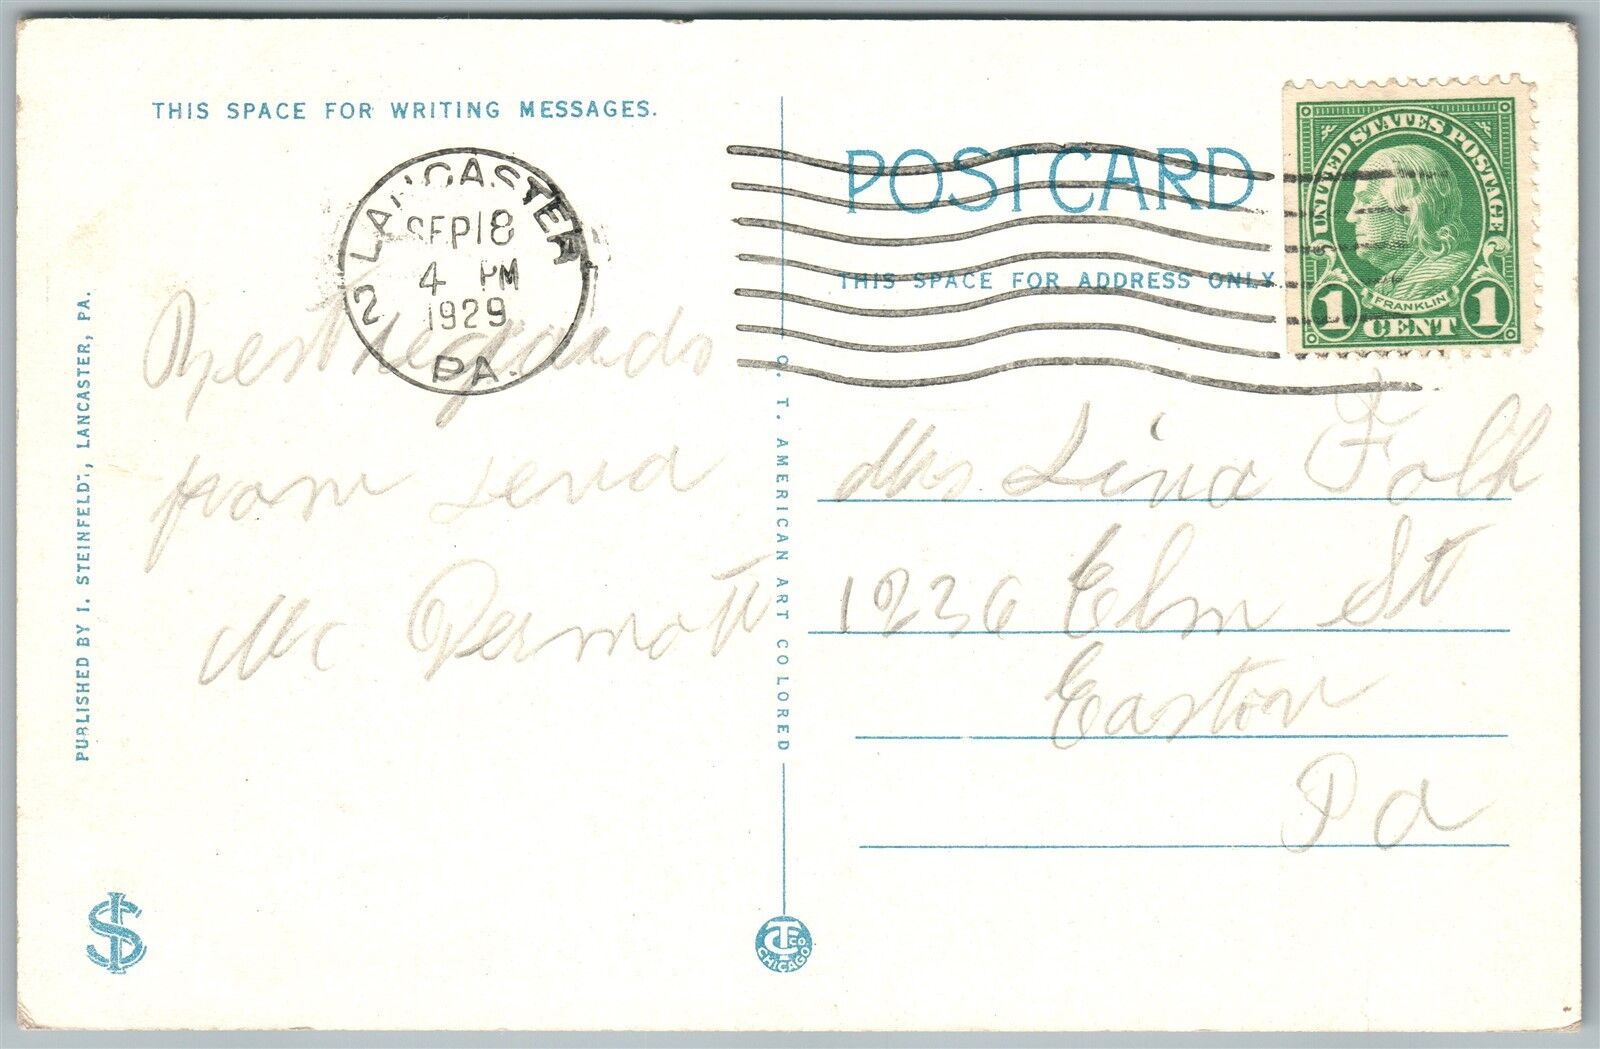 THIS SPACE FOR WRITING MESSAGES.
LANCASTER
PA.
2
SEP 18
4 PM
1929
PA.
Best regards
from Lena
Mc Dermott
PUBLISHED BY I. STEINFELDT, LANCASTER, PA.
C. T. AMERICAN ART COLORED
CT CO.
CHICAGO
POST CARD
THIS SPACE FOR ADDRESS ONLY.
UNITED STATES POSTAGE
FRANKLIN
1 CENT 1
Mrs Lina Folk
1236 Elm St
Easton
Pa